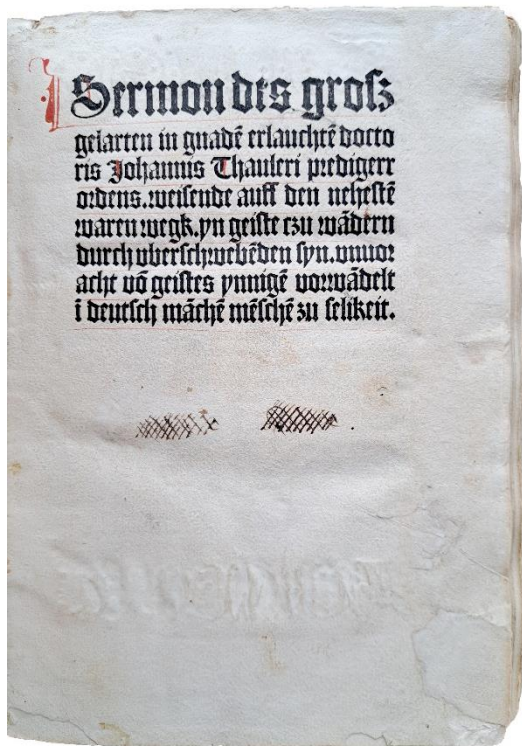 Sermon des groſz
gelarten in gnadē erlauchtē docto
ris Johannis Thauleri predigerr
ordens. weiſende auff den neheſtē
waren wegk. yn geiſte czu wādern
durch vberſchwebēden ſyn. vnuor
acht vō geiſtes ynnigē vorwādelt
i deutſch māchē mēſchē zu ſelikeit.